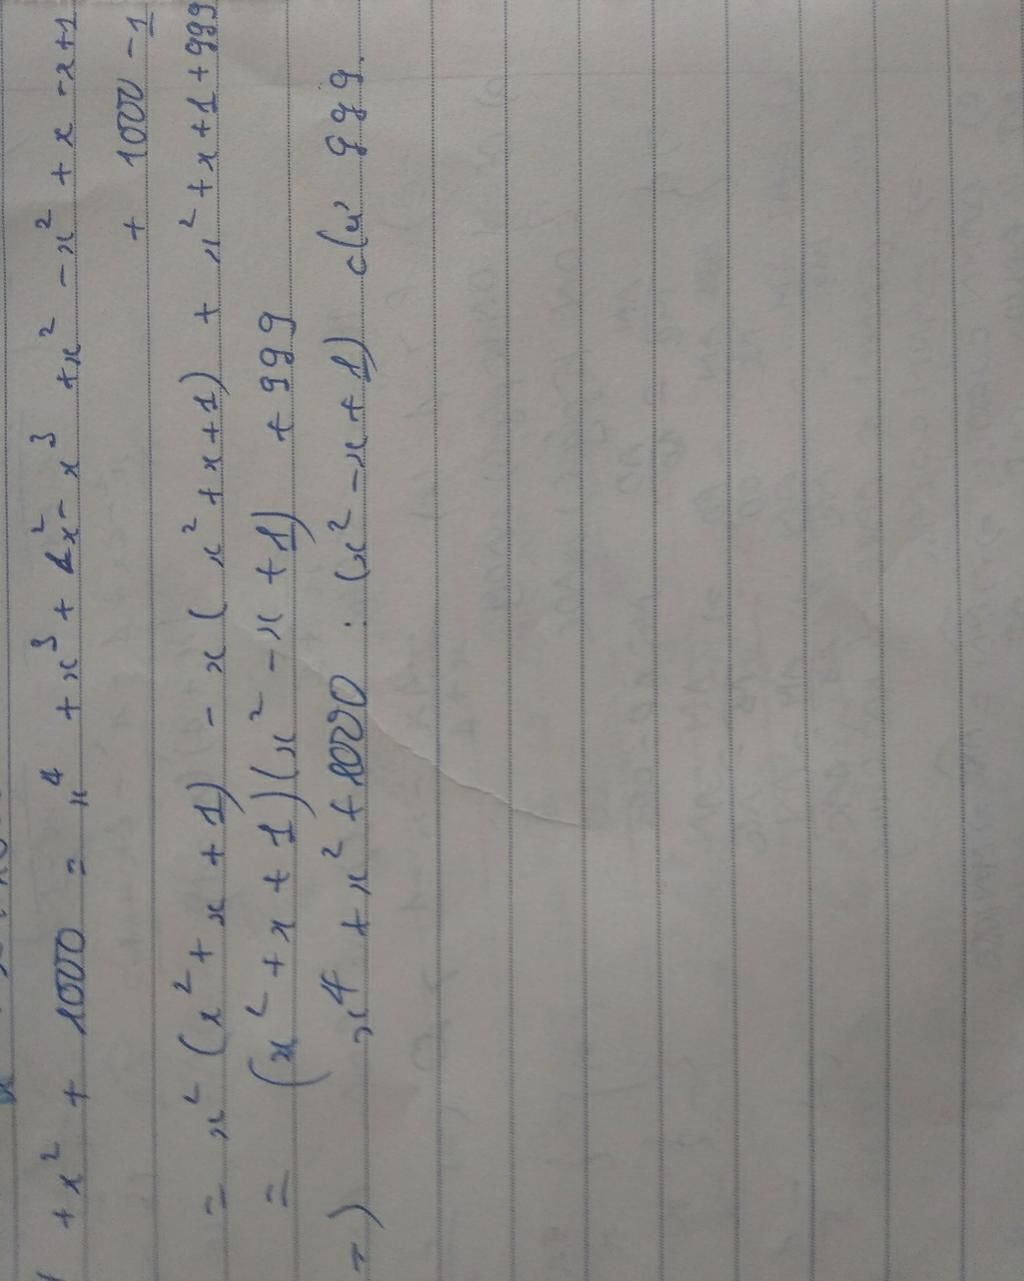 + x² + 1000 = x⁴ + x³ + x² - x³ + x² - x² + x - x + 1
+ 1000 - 1
= x² (x² + x + 1) - x (x² + x + 1) + x² + x + 1 + 999
= (x² + x + 1)(x² - x + 1) + 999
x⁴ + x² + 1000 : (x² - x + 1) dư 999.